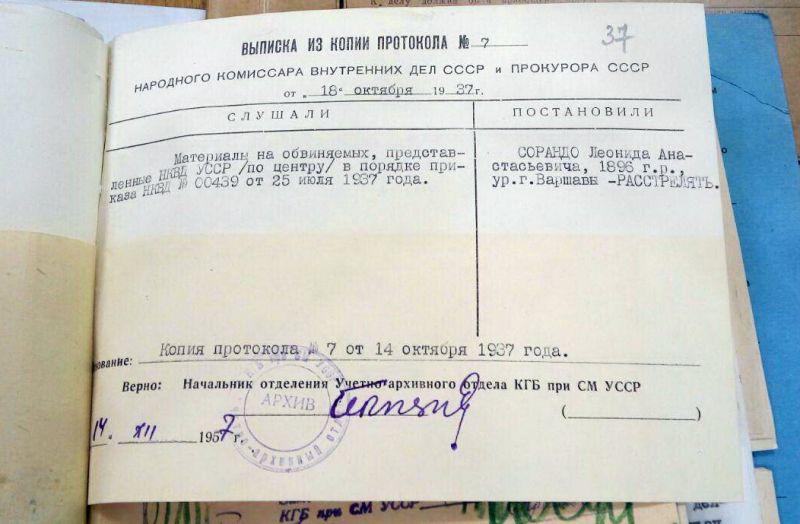 ВЫПИСКА ИЗ КОПИИ ПРОТОКОЛА № 7
37
НАРОДНОГО КОМИССАРА ВНУТРЕННИХ ДЕЛ СССР и ПРОКУРОРА СССР
от „18“ октября 1937г.
СЛУШАЛИ
ПОСТАНОВИЛИ
Материалы на обвиняемых, представ-
ленные НКВД УССР /по центру/ в порядке при-
каза НКВД № 00439 от 25 июля 1937 года.
СОРАНДО Леонида Ана-
стасьевича, 1896 г.р.,
ур.г.Варшавы -РАССТРЕЛЯТЬ.
Копия протокола № 7 от 14 октября 1937 года.
нование:
Верно: Начальник отделения Учетно-архивного отдела КГБ при СМ УССР
АРХИВ
()
14. XII 1957 г.
КГБ при СМ УССР